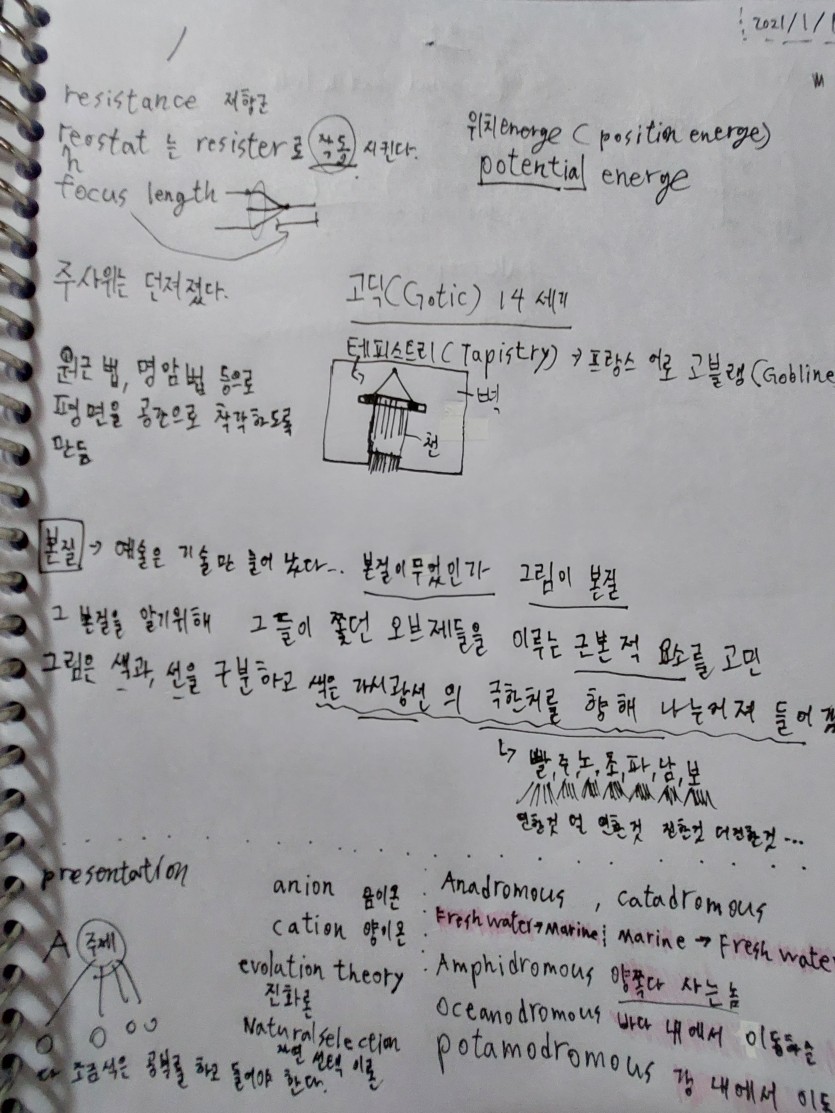 2021/1/1
m
resistance 저항군
reostat 는 resister로 작동 시킨다.
h
focus length
위치energe ( position energe)
potential energe
주사위는 던져졌다.
고딕(Gotic) 14세기
테피스트리(Tapistry) → 프랑스어로 고블램(Gobline
벽
천
원근법, 명암법 등으로
평면을 공간으로 착각하도록
만듦
본질 → 예술은 기술만 늘어 났다... 본질이 무엇인가 그림이 본질
그 본질을 알기위해 그들이 쫓던 오브제들을 이루는 근본적 요소를 고민
그림은 색과, 선을 구분하고 색은 가시광선의 극한치를 향해 나누어져 들어감
↳ 빨,주,노,초,파,남,보
연한것 덜 연한것 진한것 더진한것 ...
presentation
A 주제
다 조금식은 공부를 하고 들어야 한다.
anion 음이온
cation 양이온
evolation theory
진화론
Natural selection
자연 선택 이론
Anadromous , catadromous
Fresh water → Marine ; Marine → Fresh water
Amphidromous 양쪽다 사는 놈
Oceanodromous 바다 내에서 이동
potamodromous 강 내에서 이도